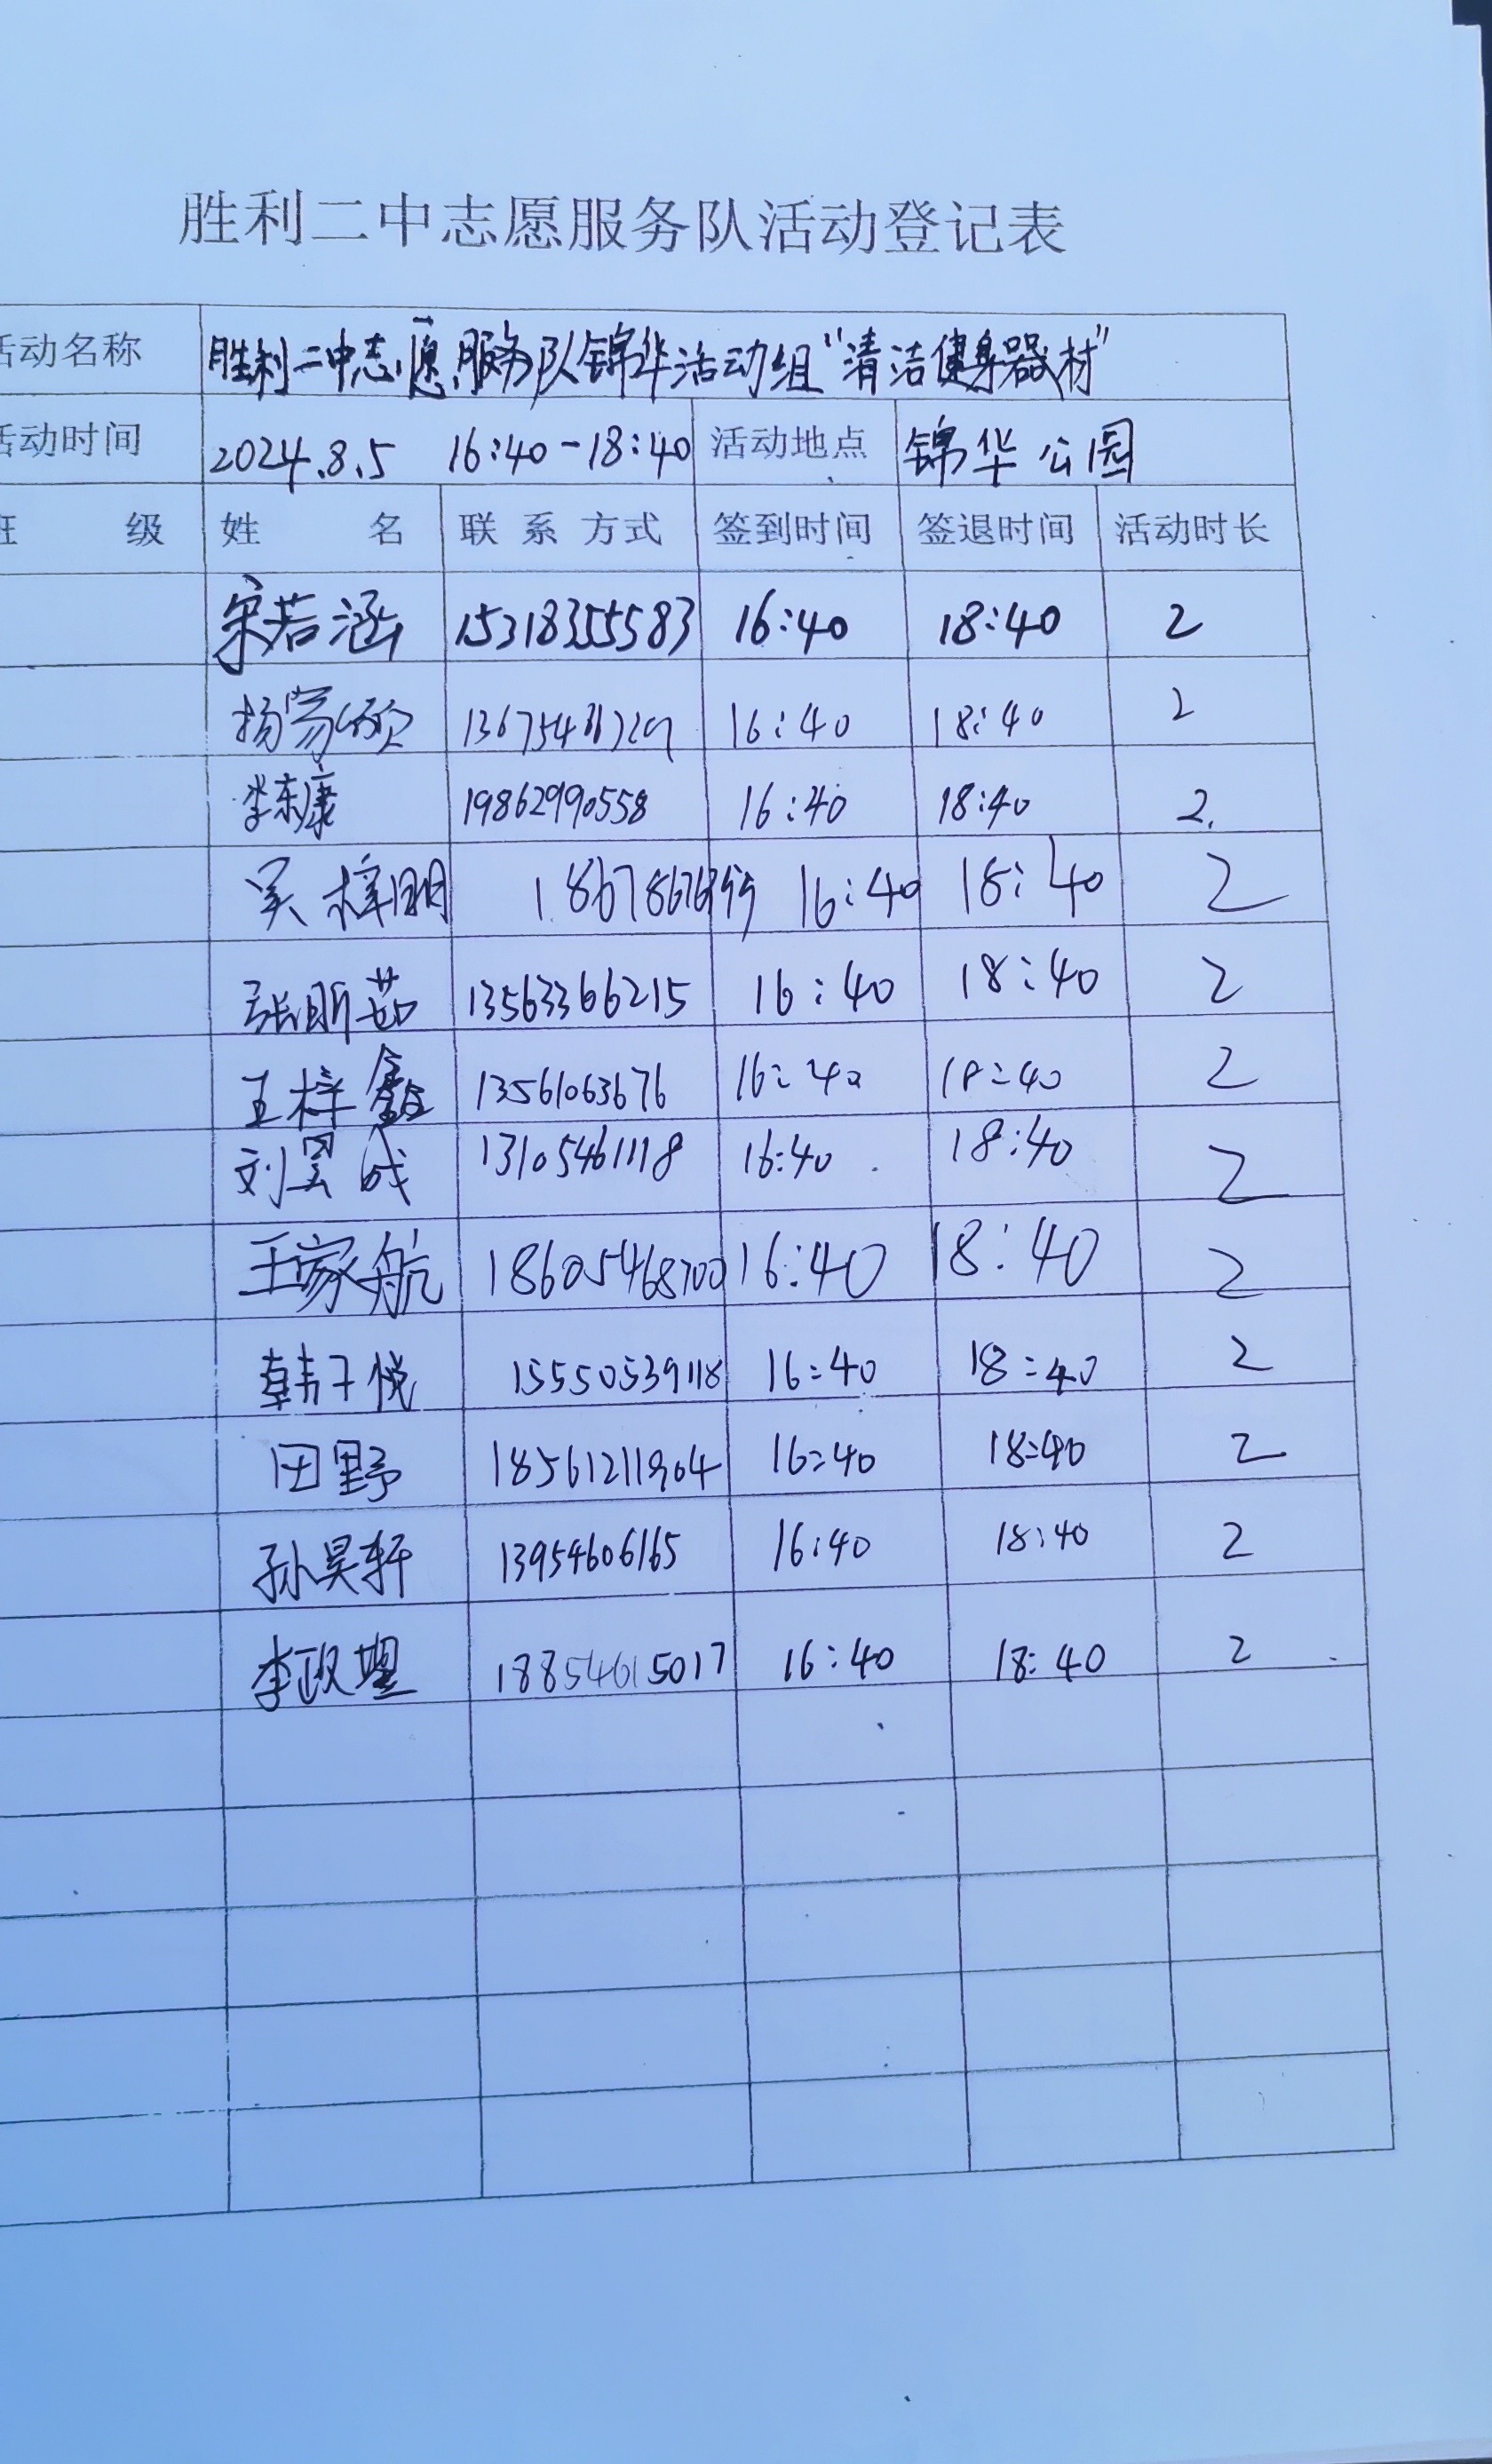 胜利二中志愿服务队活动登记表
活动名称 胜利二中志愿服务队锦华活动组“清洁健身器材”
活动时间 2024.8.5 16:40-18:40 活动地点 锦华公园
班 级 姓 名 联系方式 签到时间 签退时间 活动时长
宋若涵 15318355583 16:40 18:40 2
16:40 18:40 2
李东康 19862990558 16:40 18:40 2.
吴梓明 16:40 18:40 2
张昕茹 13563366215 16:40 18:40 2
王梓鑫 13561063676 16:40 18:40 2
刘昱成 13105461118 16:40 18:40 2
王家航 18605468700 16:40 18:40 2
韩子悦 15550539118 16:40 18:40 2
田野 18561211904 16:40 18:40 2
孙昊轩 13954606165 16:40 18:40 2
李政 18854615017 16:40 18:40 2